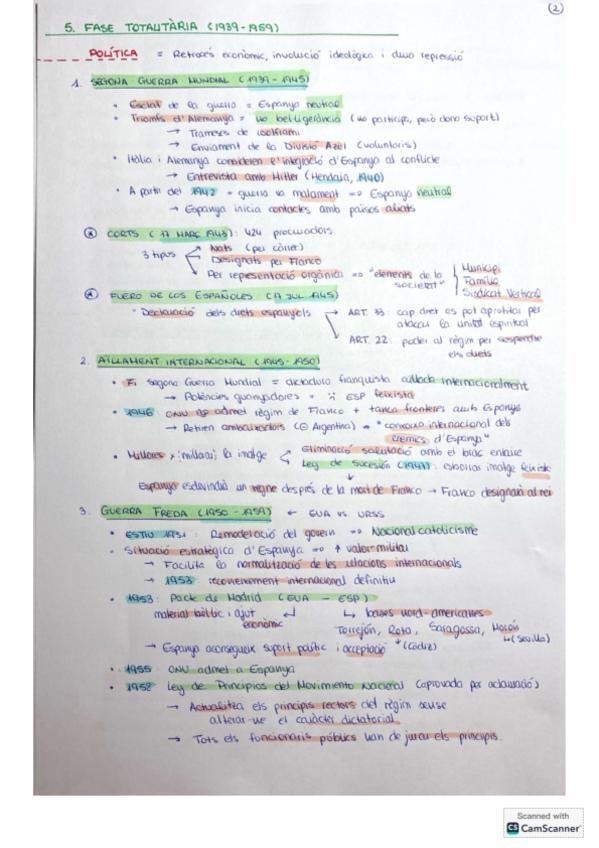 2
5. FASE TOTALITÀRIA (1939-1959)
POLÍTICA = Retrocés econòmic, involució ideològica i dura repressió
1. SEGONA GUERRA MUNDIAL (1939-1945)
• Esclat de la guerra = Espanya neutral
• Triomfs d'Alemanya = no bel·ligerància (no participa, però dona suport)
→ Trameses de wolframi
→ Enviament de la Divisió Azul (voluntaris)
• Itàlia i Alemanya consideren l'integració d'Espanya al conflicte
→ Entrevista amb Hitler (Hendaia, 1940)
• A partir del 1942 = guerra va malament => Espanya neutral
→ Espanya inicia contactes amb països aliats
* CORTS (17 MARÇ 1943): 424 procuradors
3 tipus → Nats (per càrrec)
→ Designats per Franco
→ Per representació orgànica => "elements de la societat" Municipi
Família
Sindicat Vertical
* FUERO DE LOS ESPAÑOLES (17 JUL 1945)
• Declaració dels drets espanyols → ART. 33: cap dret es pot aprofitar per
atacar la unitat espiritual
→ ART. 22: poder al règim per suspendre
els drets
2. AÏLLAMENT INTERNACIONAL (1945-1950)
• Fi Segona Guerra Mundial = dictadura franquista aïllada internacionalment
→ Potències guanyadores = ESP feixista
• 1946 ONU no admet règim de Franco + tanca fronteres amb Espanya
→ Retiren ambaixadors (Argentina) → "conxorxa internacional dels
enemics d'Espanya"
• Millores x (millorar) la imatge → Eliminació salutació amb el braç enlaire
→ Ley de Sucesión (1947): esborrar imatge feixista
Espanya esdevindrà un regne després de la mort de Franco → Franco designarà al rei
3. GUERRA FREDA (1950-1959) ← EUA vs URSS
• ESTIU 1951: Remodelació del govern => Nacionalcatolicisme
• Situació estratègica d'Espanya => ↑ valor militar
→ Facilita la normalització de les relacions internacionals
→ 1953: reconeixement internacional definitiu
• 1953: Pacte de Madrid (EUA - ESP)
material bèl·lic i ajut ↲ ↳ bases nord-americanes
econòmic Torrejón, Rota, Saragossa, Morón
(Cádiz) ↳ (Sevilla)
→ Espanya aconsegueix suport polític i acceptació
• 1955: ONU admet a Espanya
• 1958 Ley de Principios del Movimiento Nacional (aprovada per aclamació)
→ Actualitza els principis rectors del règim sense
alterar-ne el caràcter dictatorial
→ Tots els funcionaris públics han de jurar els principis.
Scanned with
CS CamScanner